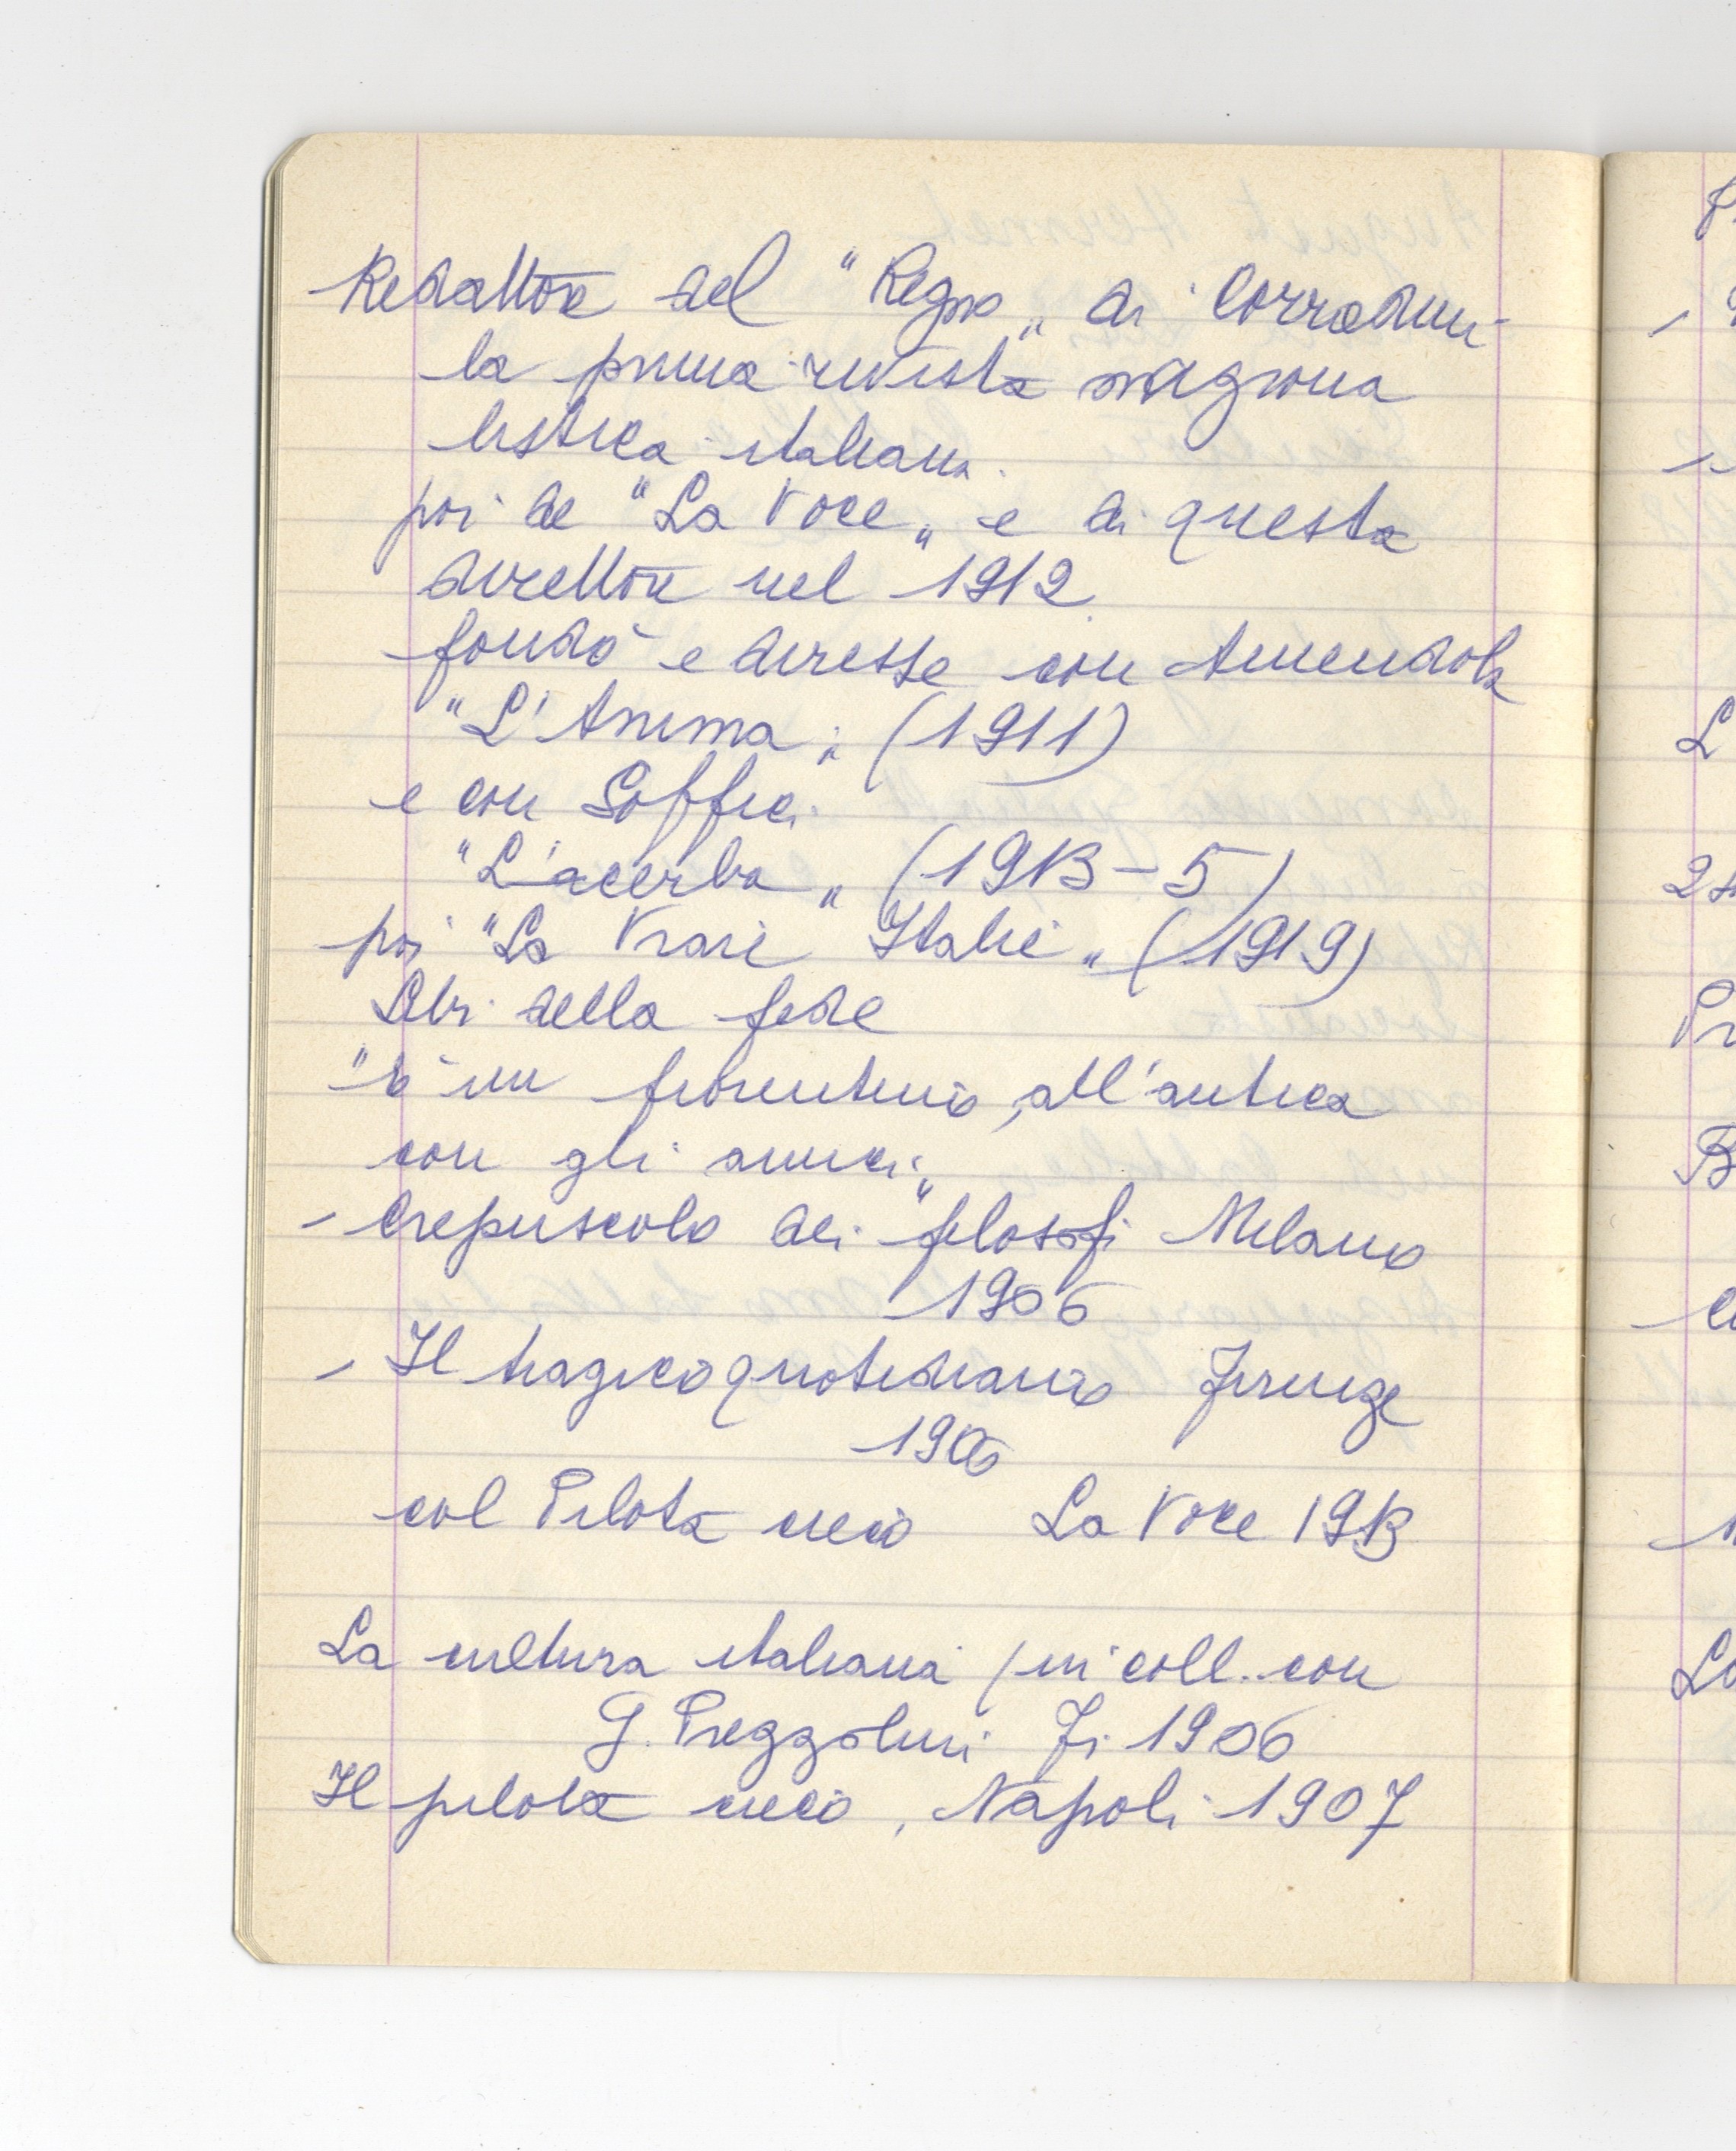 Redattore del "Regno„ di Corradini
la prima rivista nagiona
listica italiana.
poi de "La Voce„ e di questa
direttore nel 1912
fondò e diresse con Amendola
"L'Anima„ (1911)
e con Soffici
"L'acerba„ (1913-5)
poi "La Vraie Italie„ (1919)
Libri della fede
"è un fiorentino all'antica
con gli amici„
- Crepuscolo dei filosofi Milano
1906
- Il tragico quotidiano Firenze
1906
col Pilota cieco La Voce 1913
La cultura italiana (in coll. con
G. Prezzolini Fi 1906
Il pilota cieco, Napoli 1907
L'
Pr
Lo